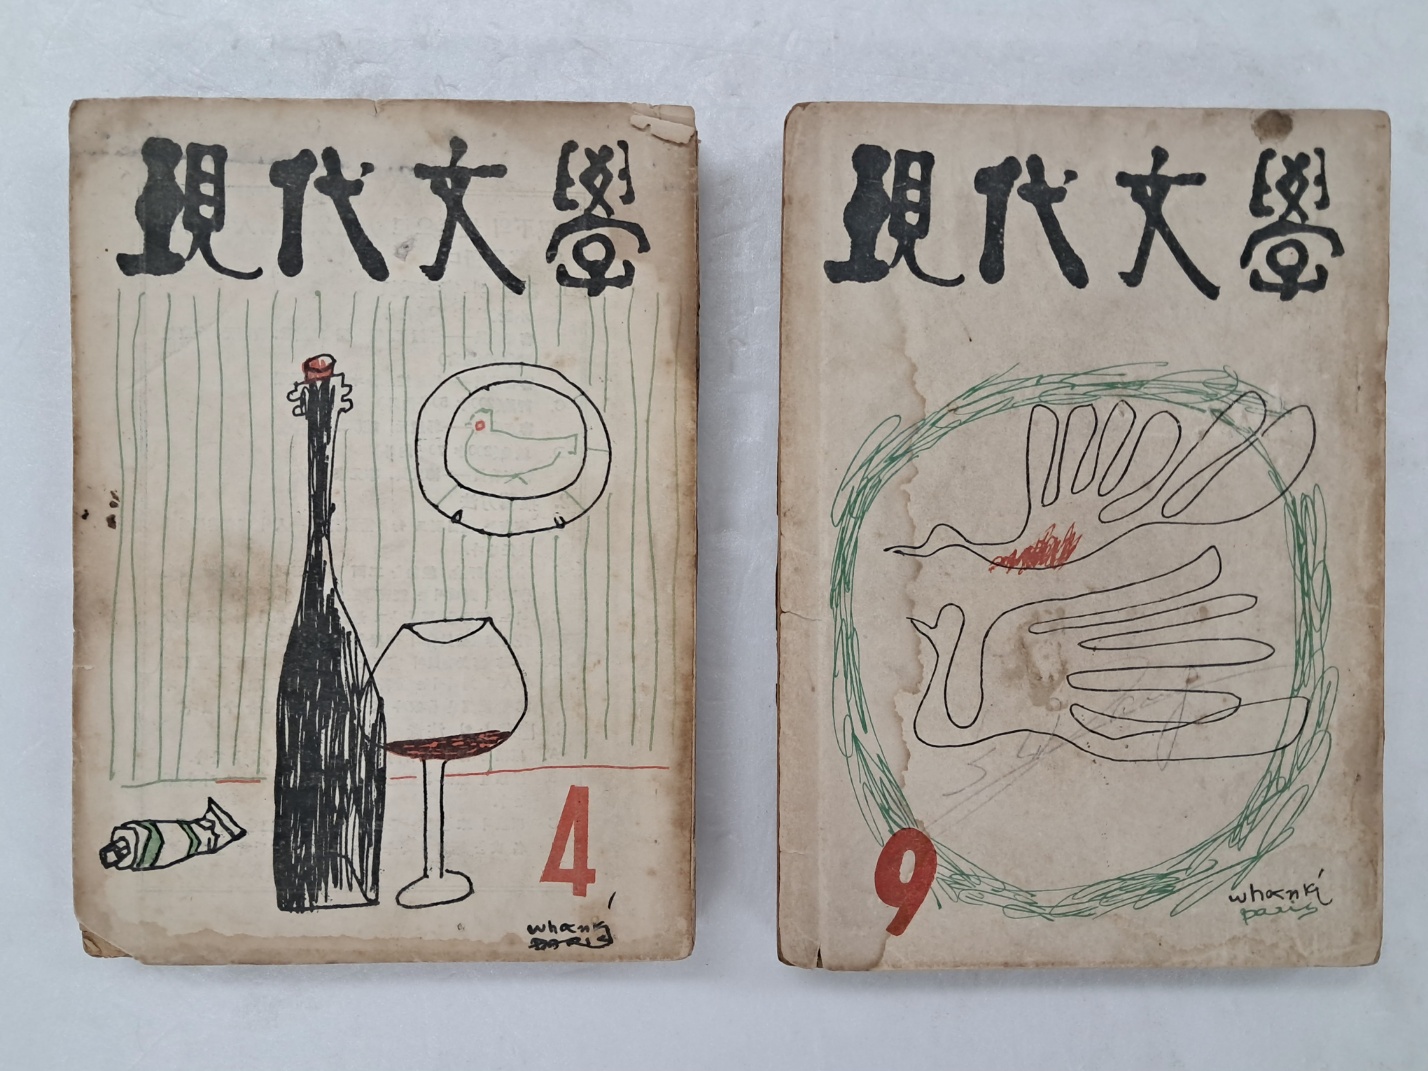 現代文學
4
whanki
PARIS
現代文學
9
whanki
paris